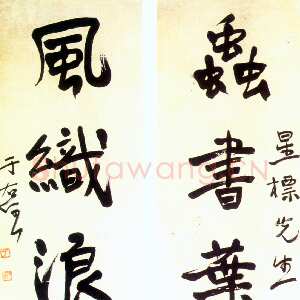 星標先生
蟲書葉
風織浪
于右任